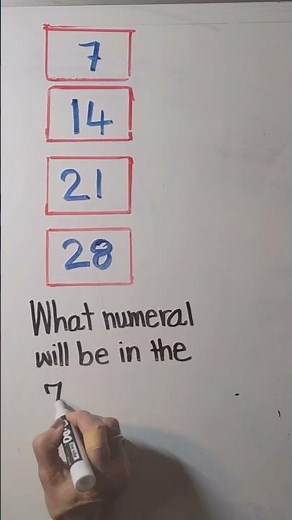 7
14
21
28
What numeral
will be in the
7